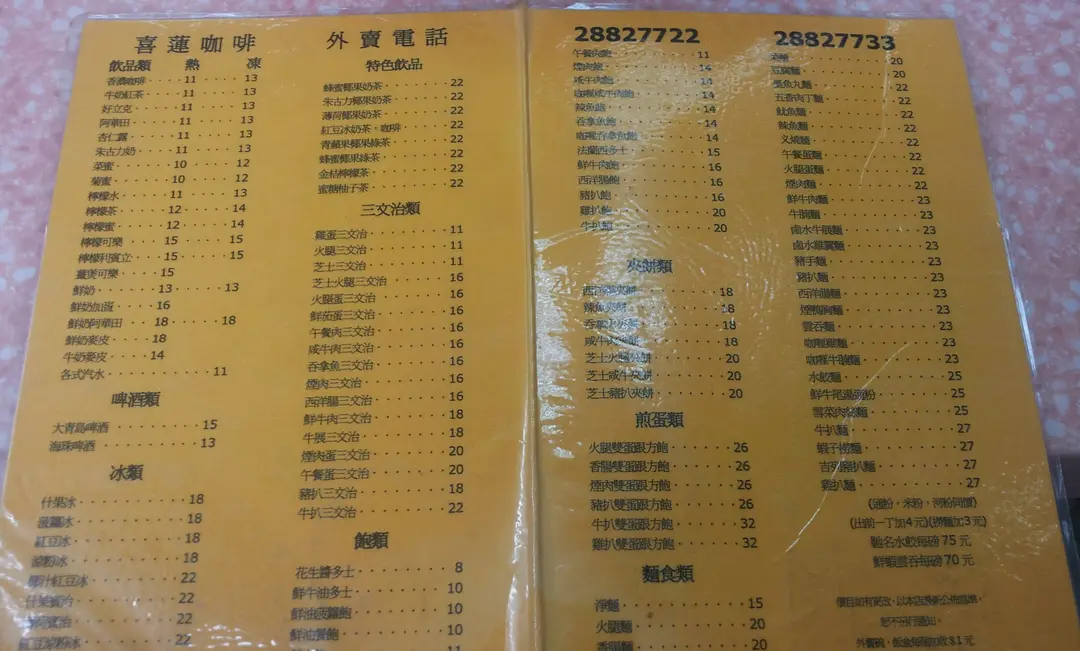 喜蓮咖啡
飲品類 熱 凍
香濃咖啡 11 13
牛奶紅茶 11 13
好立克 11 13
阿華田 11 13
杏仁露 11 13
朱古力奶 11 13
菜蜜 10 12
菊蜜 10 12
檸檬水 11 13
檸檬茶 12 14
檸檬蜜 12 14
檸檬可樂 15 15
檸檬利賓立 15 15
薑煲可樂 15
鮮奶 13 13
鮮奶加蛋 16
鮮奶阿華田 18 18
鮮奶麥皮 18
牛奶麥皮 14
各式汽水 11
啤酒類
大青島啤酒 15
海珠啤酒 13
冰類
什果冰 18
菠蘿冰 18
紅豆冰 18
涼粉冰 18
椰汁紅豆冰 22
什果賓治 22
22
紅豆涼粉冰 22
外賣電話
特色飲品
蜂蜜椰果奶茶 22
朱古力椰果奶茶 22
薄荷椰果奶茶 22
紅豆冰奶茶，咖啡 22
青蘋果椰果綠茶 22
蜂蜜椰果綠茶 22
金桔檸檬茶 22
蜜糖柚子茶 22
三文治類
雞蛋三文治 11
火腿三文治 11
芝士三文治 11
芝士火腿三文治 16
火腿蛋三文治 16
鮮茄蛋三文治 16
午餐肉三文治 16
咸牛肉三文治 16
吞拿魚三文治 16
煙肉三文治 16
西洋腸三文治 16
鮮牛肉三文治 18
牛展三文治 18
煙肉蛋三文治 20
午餐蛋三文治 20
豬扒三文治 18
牛扒三文治 22
飽類
花生醬多士 8
鮮牛油多士 10
鮮油菠蘿飽 10
鮮油餐飽 10
11
28827722
午餐肉飽 11
煙肉飽 14
咸牛肉飽 14
咖喱咸牛肉飽 14
辣魚飽 14
吞拿魚飽 14
咖喱吞拿魚飽 14
法蘭西多士 15
鮮牛肉飽 16
西洋腸飽 16
豬扒飽 16
雞扒飽 20
牛扒飽 20
夾餅類
西洋腸夾餅 18
辣魚夾餅 18
吞拿魚夾餅 18
咸牛夾餅 18
芝士火腿夾餅 20
芝士咸牛夾餅 20
芝士豬扒夾餅 20
煎蛋類
火腿雙蛋跟方飽 26
香腸雙蛋跟方飽 26
煙肉雙蛋跟方飽 26
豬扒雙蛋跟方飽 26
牛扒雙蛋跟方飽 32
雞扒雙蛋跟方飽 32
麵食類
淨麵 15
火腿麵 20
香腸麵 20
28827733
菜麵 20
豆腐麵 20
墨魚丸麵 22
五香肉丁麵 22
魷魚麵 22
辣魚麵 22
叉燒麵 22
午餐蛋麵 22
火腿蛋麵 22
煙肉麵 22
鮮牛肉麵 22
牛腩麵 23
鹵水牛展麵 23
鹵水雞翼麵 23
豬手麵 23
豬扒麵 23
西洋腸麵 23
煙鴨胸麵 23
雲吞麵 23
咖喱雞麵 23
咖喱牛腩麵 23
水餃麵 25
鮮牛尾湯通粉 25
雪菜肉絲麵 25
牛扒麵 27
蝦子撈麵 27
吉列豬扒麵 27
雞扒麵 27
(通粉，米粉，河粉同價)
(出前一丁加4元)(撈麵加3元)
馳名水餃每磅75元
鮮蝦雲吞每磅70元
價目如有更改，以本店最新公佈為準，
恕不另行通知。
外賣碗，飯盒每個加收$1元